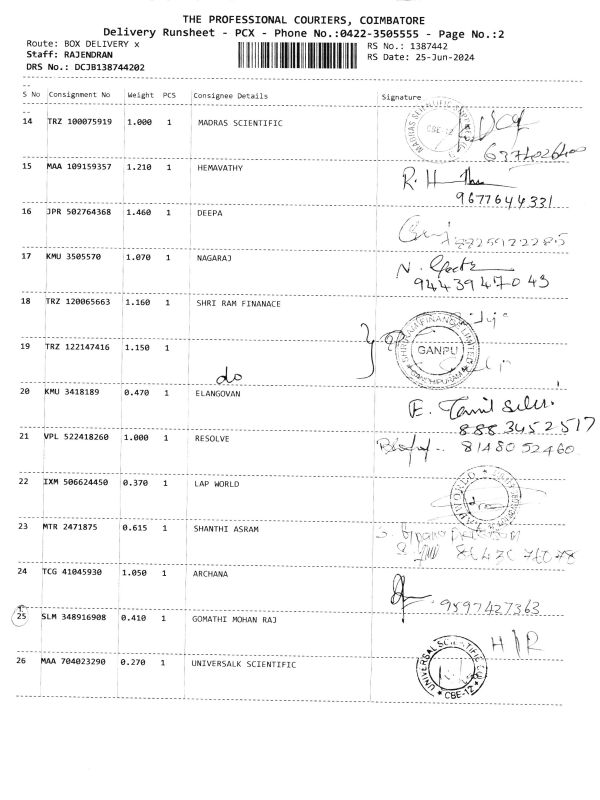 THE PROFESSIONAL COURIERS, COIMBATORE
Delivery Runsheet - PCX - Phone No.:0422-3505555 - Page No.:2
Route: BOX DELIVERY x RS No.: 1387442
Staff: RAJENDRAN RS Date: 25-Jun-2024
DRS No.: DCJB138744202
S No Consignment No Weight PCS Consignee Details Signature
14 TRZ 100075919 1.000 1 MADRAS SCIENTIFIC
CBE-12
15 MAA 109159357 1.210 1 HEMAVATHY R. H
9677644331
16 JPR 502764368 1.460 1 DEEPA
17 KMU 3505570 1.070 1 NAGARAJ N. Geetha
9443947043
18 TRZ 120065663 1.160 1 SHRI RAM FINANACE
SHRIRAM FINANCE LIMITED
GANPU
19 TRZ 122147416 1.150 1
do
20 KMU 3418189 0.470 1 ELANGOVAN E. Tamil Selvi
8883452517
21 VPL 522418260 1.000 1 RESOLVE 8148052460
22 IXM 506624450 0.370 1 LAP WORLD
23 MTR 2471875 0.615 1 SHANTHI ASRAM
24 TCG 41045930 1.050 1 ARCHANA
9597427363
25 SLM 348916908 0.410 1 GOMATHI MOHAN RAJ
26 MAA 704023290 0.270 1 UNIVERSALK SCIENTIFIC
UNIVERSAL SCIENTIFIC
CBE-12